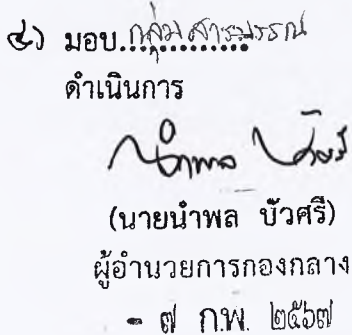 ๔) มอบ..กลุ่มสารบรรณ
ดำเนินการ
นำพล บัวศรี
(นายนำพล บัวศรี)
ผู้อำนวยการกองกลาง
- ๗ ก.พ. ๒๕๖๗